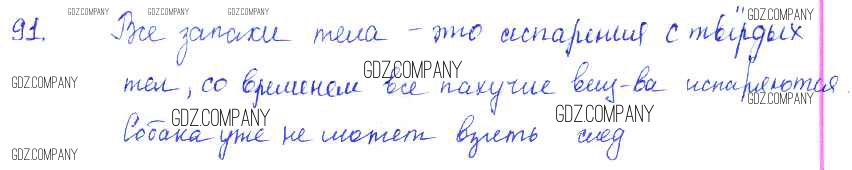 GDZ.COMPANY GDZ.COMPANY GDZ.COMPANY GDZ.COMPANY
91. Все запахи тела – это испарения с твёрдых
GDZ.COMPANY GDZ.COMPANY
тел, со временем все пахучие вещ-ва испаряются.
GDZ.COMPANY GDZ.COMPANY GDZ.COMPANY
Собака уже не может взять след
GDZ.COMPANY